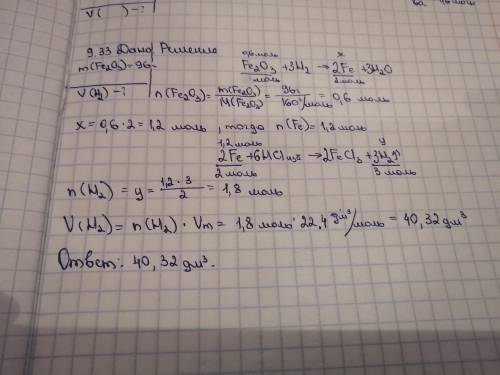 V( )-?
9.33 Дано Решение
0,6 моль x
m(Fe₂O₃)=96г Fe₂O₃ + 3H₂ → 2Fe + 3H₂O
моль 2 моль
V(H₂)-? n(Fe₂O₃) = m(Fe₂O₃)/M(Fe₂O₃) = 96г/160г/моль = 0,6 моль
x = 0,6 · 2 = 1,2 моль, тогда n(Fe) = 1,2 моль
1,2 моль y
2Fe + 6HCl изб → 2FeCl₃ + 3H₂↑
2 моль 3 моль
n(H₂) = y = 1,2 · 3/2 = 1,8 моль
V(H₂) = n(H₂) · Vm = 1,8 моль · 22,4 дм³/моль = 40,32 дм³
Ответ: 40,32 дм³.